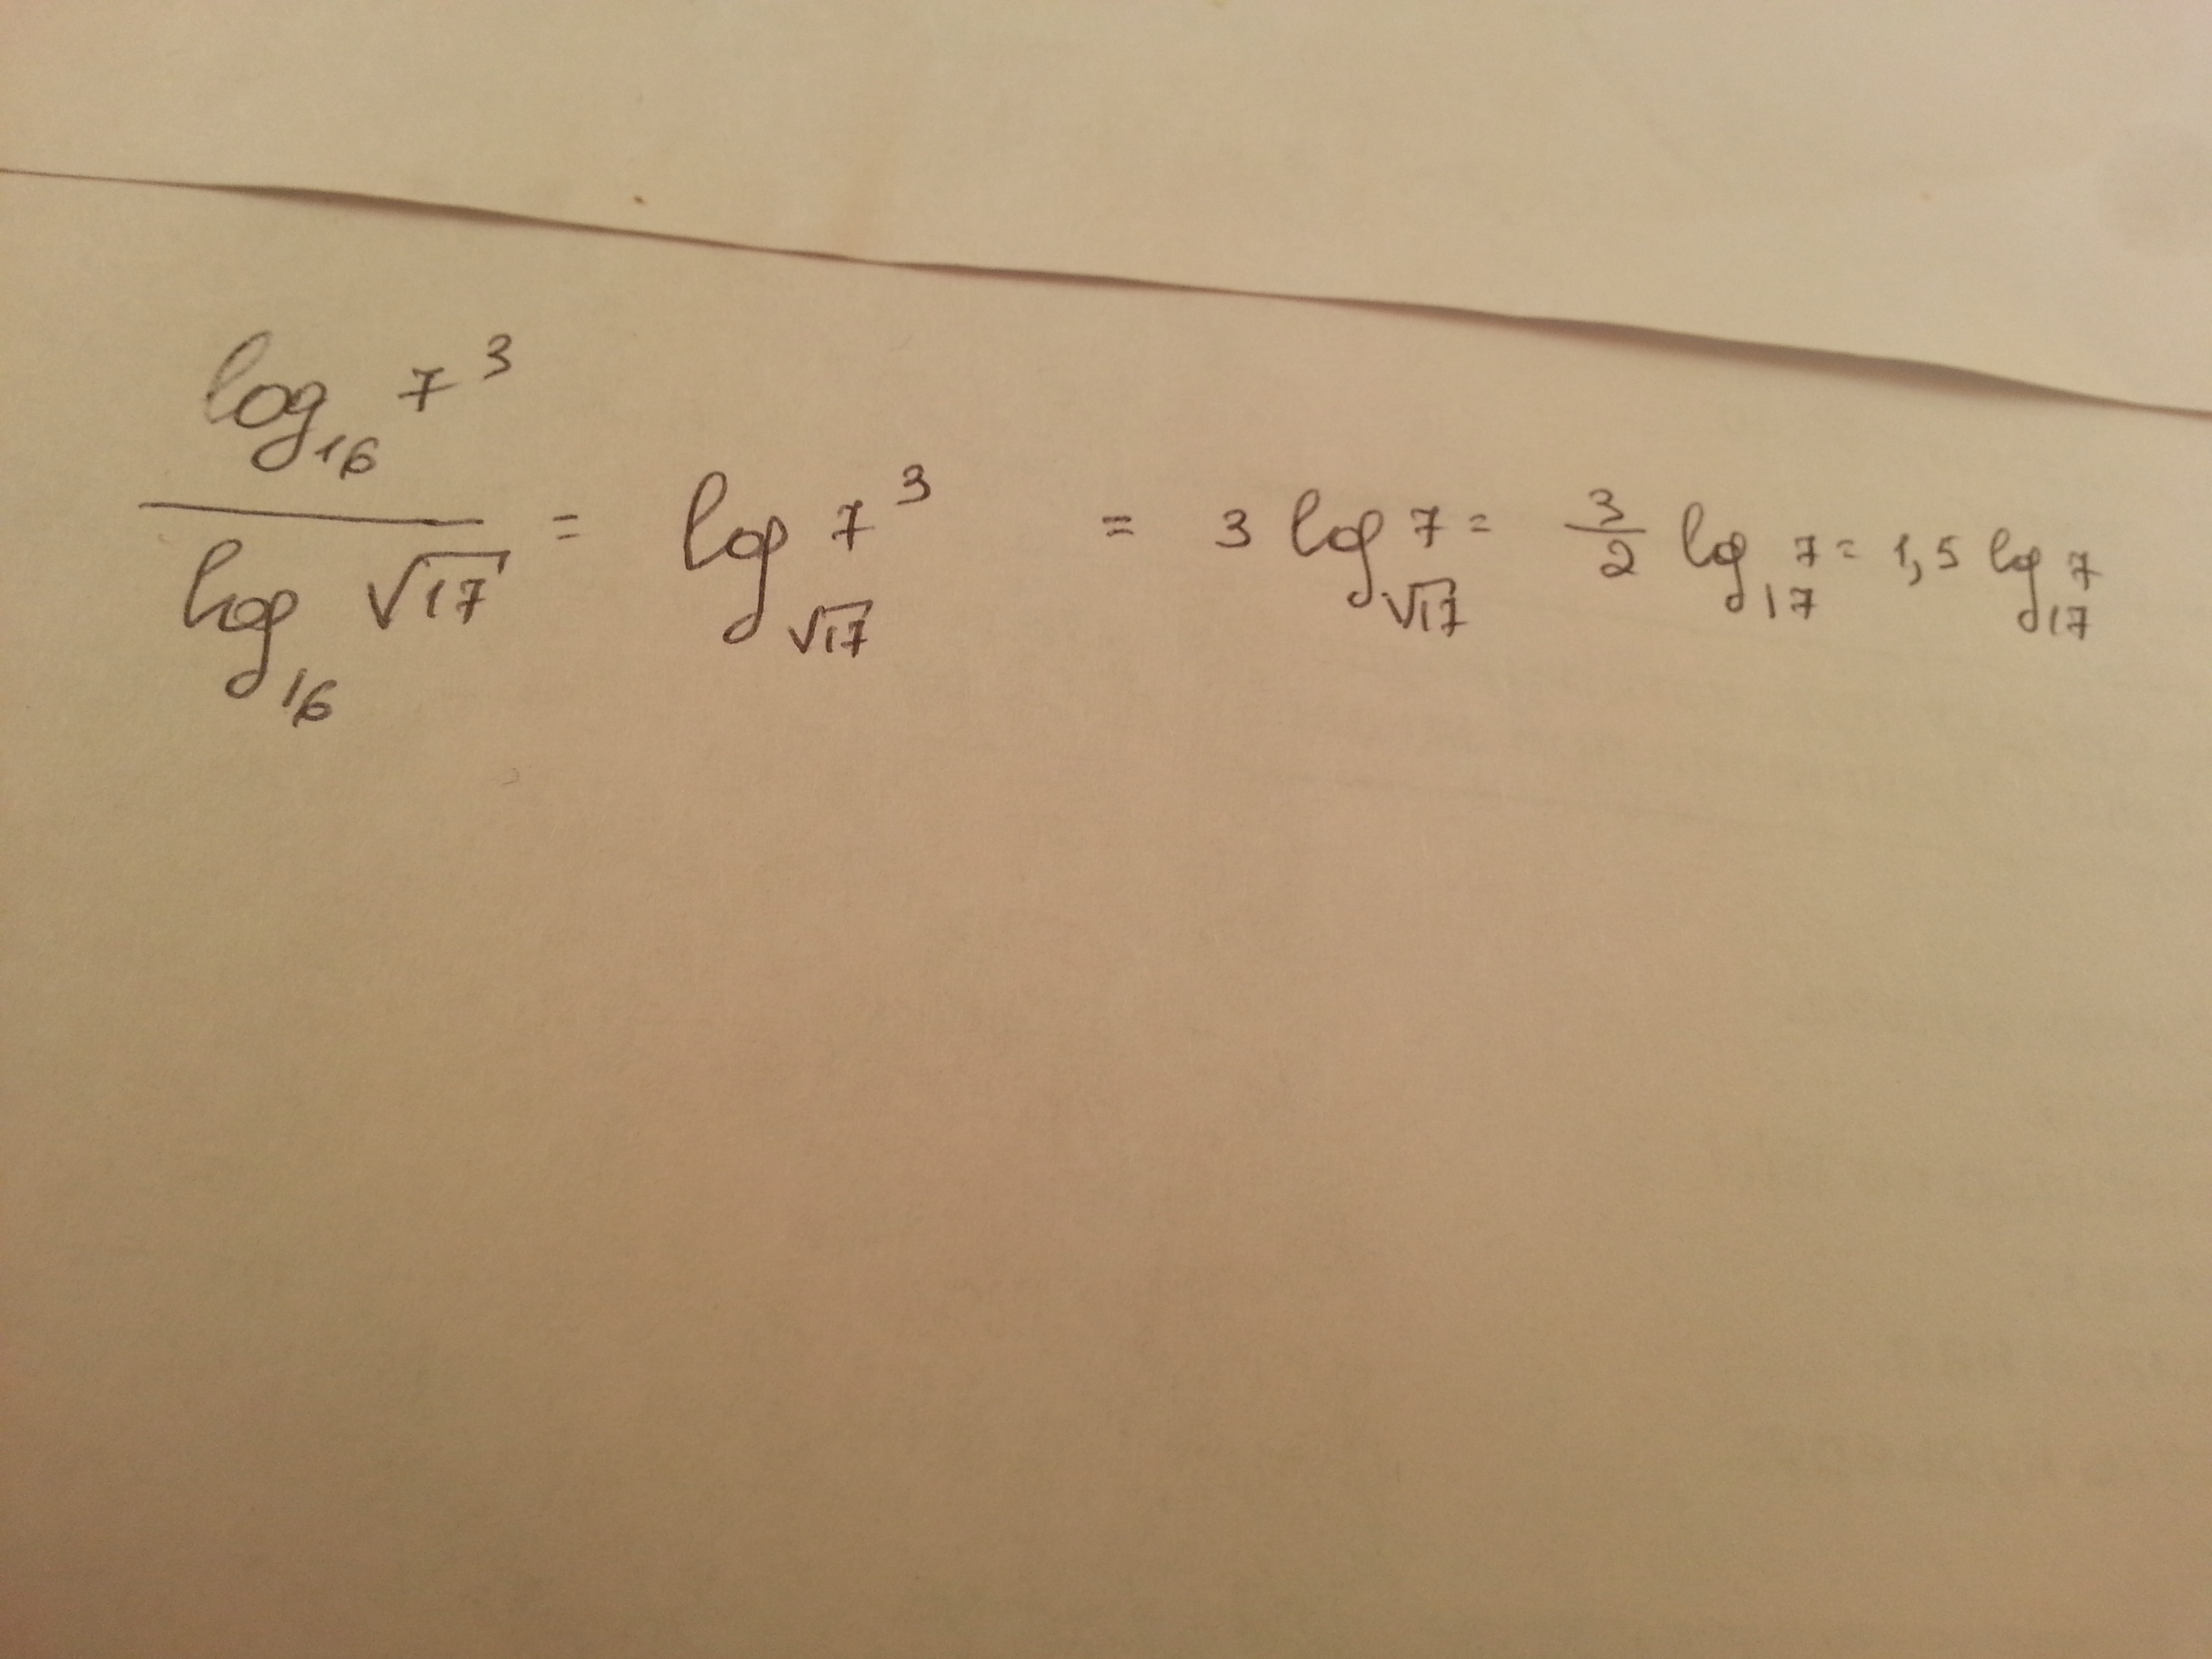 log₁₆ 7³ / log₁₆ √17 = log_√17 7³ = 3 log_√17 7 = 3/2 log₁₇ 7 = 1,5 log₁₇ 7